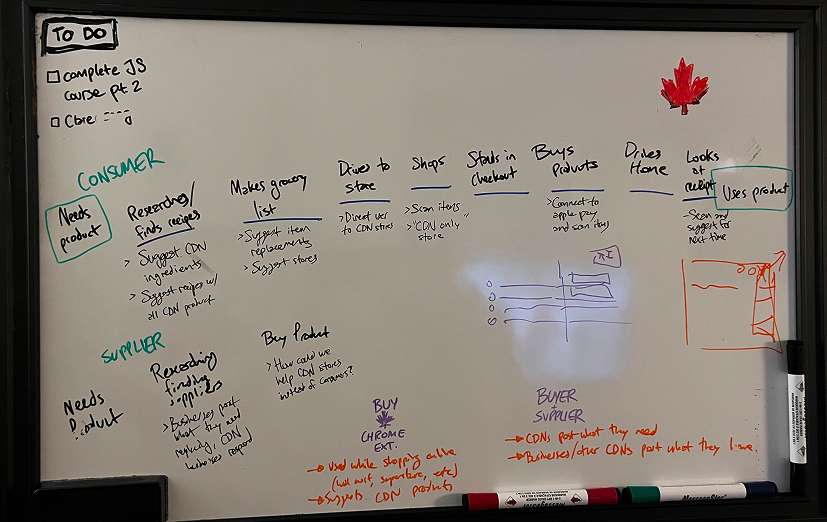 TO DO
complete JS
course pt 2
CONSUMER
Needs
product
Researches/
finds recipes
> Suggest CDN
ingredients
> Suggest recipes w/
all CDN product
Makes grocery
list
> Suggest item
replacements
> Suggest stores
Drives to
store
> Direct user
to CDN stores
Shops
> Scan items
> "CDN only
store"
Stands in
checkout
Buys
products
> Connect to
apple pay
and scan items
Drives
Home
Looks
at
receipt
- Scan and
suggest for
next time
Uses product
SUPPLIER
Needs
Researching/
finding
suppliers
> Businesses post
what they need
replacing, CDN
businesses respond
Buy Product
> How could we
help CDN stores
instead of consumers?
BUY
CHROME
EXT.
→ Used while shopping online
(wal mart, superstore, etc)
→ Suggests CDN products
BUYER
+
SUPPLIER
→ CDNs post what they need
→ Businesses/other CDNs post what they have.